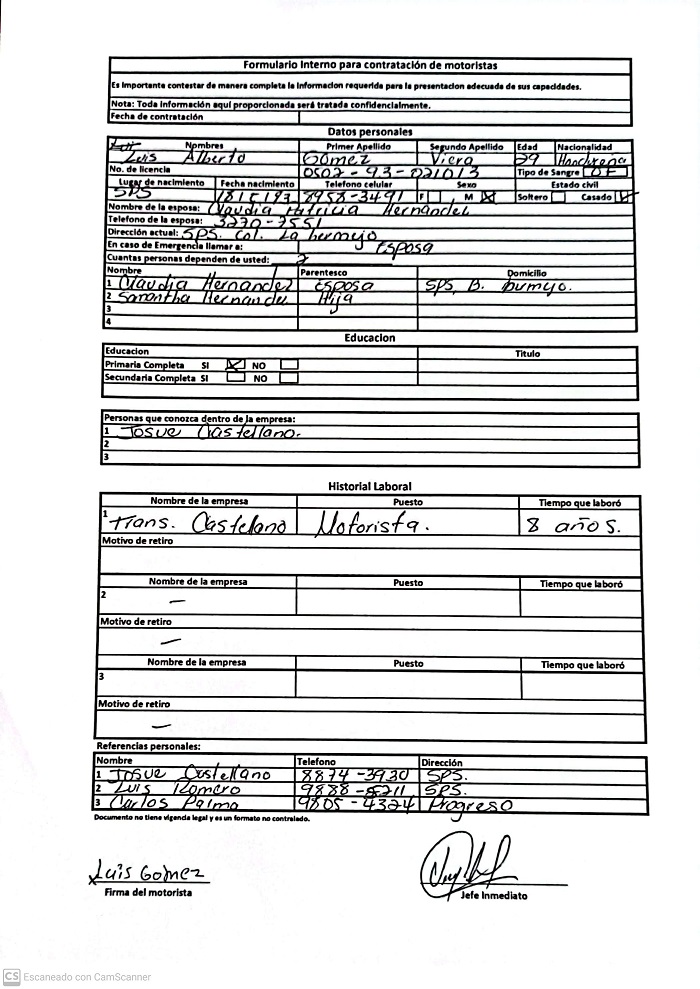 Formulario Interno para contratación de motoristas
Es Importante contestar de manera completa la Informacion requerida para la presentacion adecuada de sus capacidades.
Nota: Toda información aquí proporcionada será tratada confidencialmente.
Fecha de contratación
Datos personales
Nombres Primer Apellido Segundo Apellido Edad Nacionalidad
Luis Alberto Gómez Viera 29 Hondureña
No. de licencia 0502 - 93 - 021013 Tipo de Sangre
Lugar de nacimiento Fecha nacimiento Telefono celular Sexo Estado civil
SPS 8958-3491 F M Soltero Casado
Nombre de la esposa: Claudia Patricia Hernandez
Telefono de la esposa: 3270-7551
Dirección actual: SPS. Col. La bermejo
En caso de Emergencia llamar a: Esposa
Cuantas personas dependen de usted: 2
Nombre Parentesco Domicilio
1 Claudia Hernandez Esposa SPS, B. bumejo.
2 Samantha Hernandez Hija
3
4
Educacion
Educacion Titulo
Primaria Completa SI NO
Secundaria Completa SI NO
Personas que conozca dentro de la empresa:
1 Josue Castellano.
2
3
Historial Laboral
Nombre de la empresa Puesto Tiempo que laboró
1 Trans. Castellano Motorista. 8 años.
Motivo de retiro
Nombre de la empresa Puesto Tiempo que laboró
2 —
Motivo de retiro
—
Nombre de la empresa Puesto Tiempo que laboró
3
Motivo de retiro
—
Referencias personales:
Nombre Telefono Dirección
1 Josue Castellano 8874-3930 SPS.
2 Luis Romero 9888-8211 SPS.
3 Carlos Palma 9805-4324 Progreso
Documento no tiene vigencia legal y es un formato no controlado.
Luis Gomez
Firma del motorista Jefe Inmediato
CS Escaneado con CamScanner